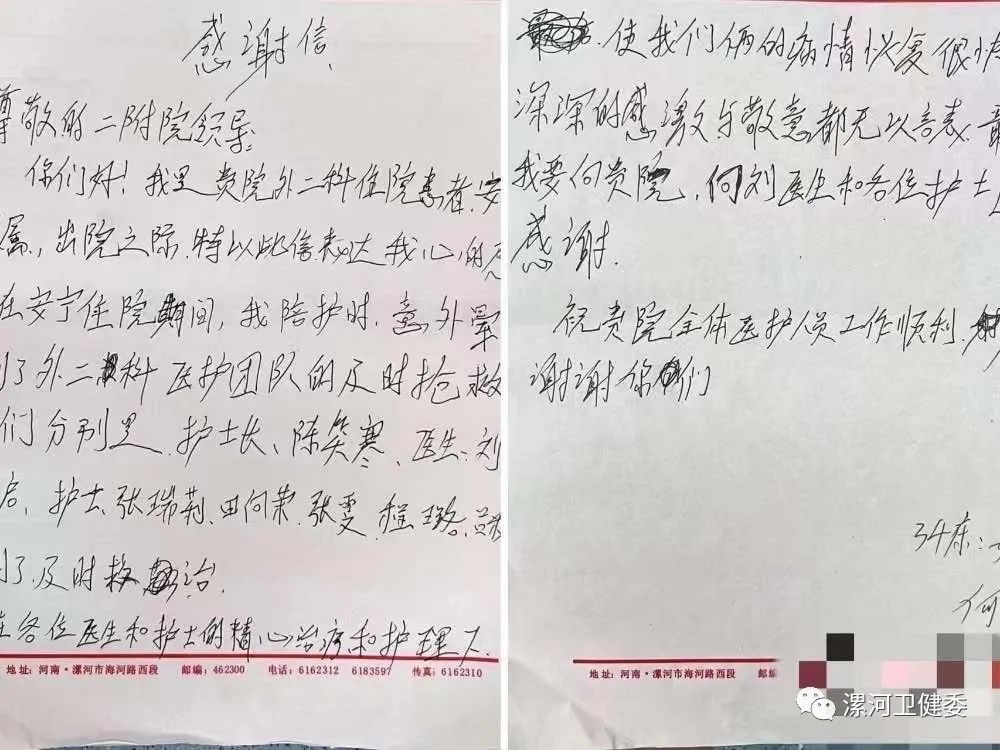 感谢信
尊敬的二附院领导:
你们好!我是贵院外二科住院患者,安
属,出院之际,特以此信表达我心的感
在安宁住院期间,我陪护时,意外晕
到了外二科医护团队的及时抢救
们分别是,护士长、陈笑寒、医生:刘
启、护士、张瑞莉、田何荣、张雯、程璐、
到了及时救治.
在各位医生和护士的精心治疗和护理下
地址:河南·漯河市海河路西段 邮编:462300 电话:6162312 6183597 传真:6162310
使我们俩的病情恢复很快
深深的感激与敬意都无以言表.最
我要向贵院,向刘医生和各位护士
感谢.
祝贵院全体医护人员工作顺利,
谢谢你们
34床:
何
地址:河南·漯河市海河路西段 邮编
漯河卫健委